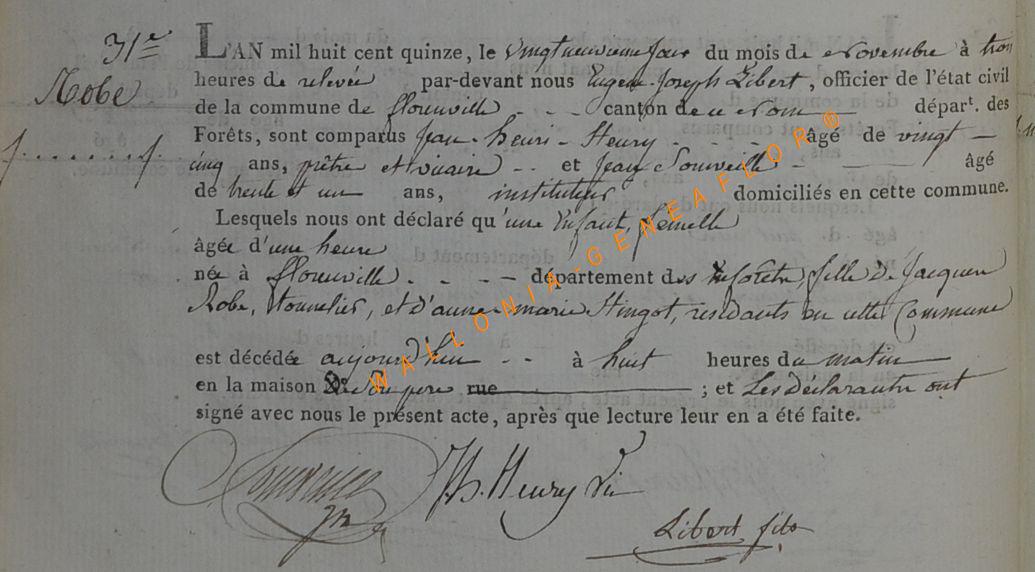 31e
Robe
L'AN mil huit cent quinze, le vingtneuvieme jour du mois de novembre à trois
heures de relevée par-devant nous Eugene-Joseph Libert, officier de l'état civil
de la commune de florenville - - - canton de départ. des
Forêts, sont comparus Jean-henri-Henry - - - âgé de vingt -
cinq ans, prêtre et vicaire - - et Jean Souveille âgé
de trente et un ans, instituteur domiciliés en cette commune.
Lesquels nous ont déclaré qu'une Enfant, femelle
âgée d'une heure
née à florenville - - - département des forêts, fille de Jacques
Robe, tonnelier, et d'anne-marie Hingot, residants en cette Commune
est décédée aujourd'hui - - à huit heures du matin
en la maison de son pere rue ; et Les Déclarants ont
signé avec nous le présent acte, après que lecture leur en a été faite.
Henry
Libert fils
WALLONIA-GENEAFLOR®